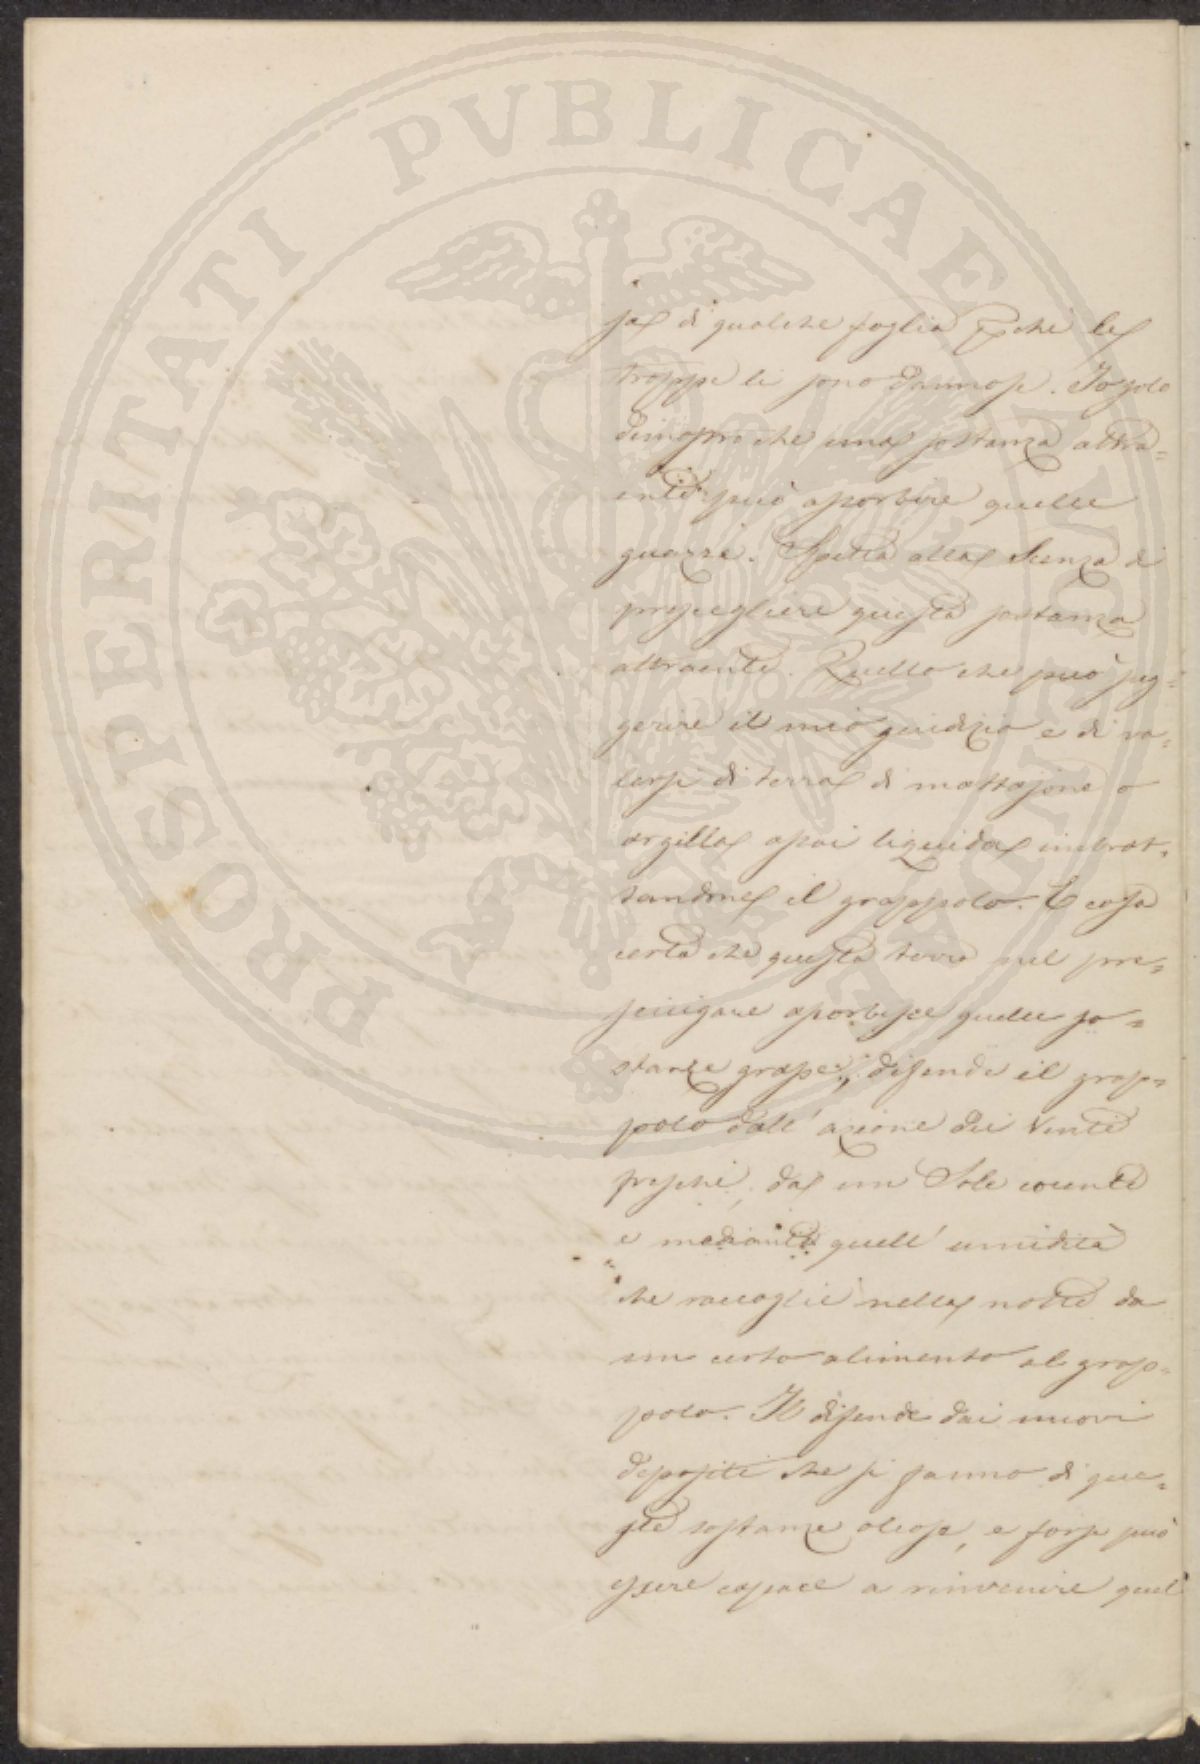 PROSPERITATI PUBLICAE AUGENDAE
sa di qualche foglia perche le
troppe li sono dannose. Io solo
dimostro che una sostanza attra=
ente può assorbire quelle
guazze. Spetta alla Scienza di
presciegliere questa sostanza
attraente. Quello che può sug=
gerire il mio giudizio e di va=
lersi di terra di mattajone o
argilla assai liquida imbrat=
tandone il grappolo. E cosa
certa che questa terra nel pro=
sciugare assorbisce quelle so=
stanze grasse, difende il grap=
polo dall' azione dei Venti
freschi, da un Sole cocente
e mediante quell' umidità
che raccoglie nella notte da
un certo alimento al grap=
polo. Il difende dai nuovi
depositi che si fanno di que=
ste sostanze oleose, e forse può
essere capace a rinvenire quel